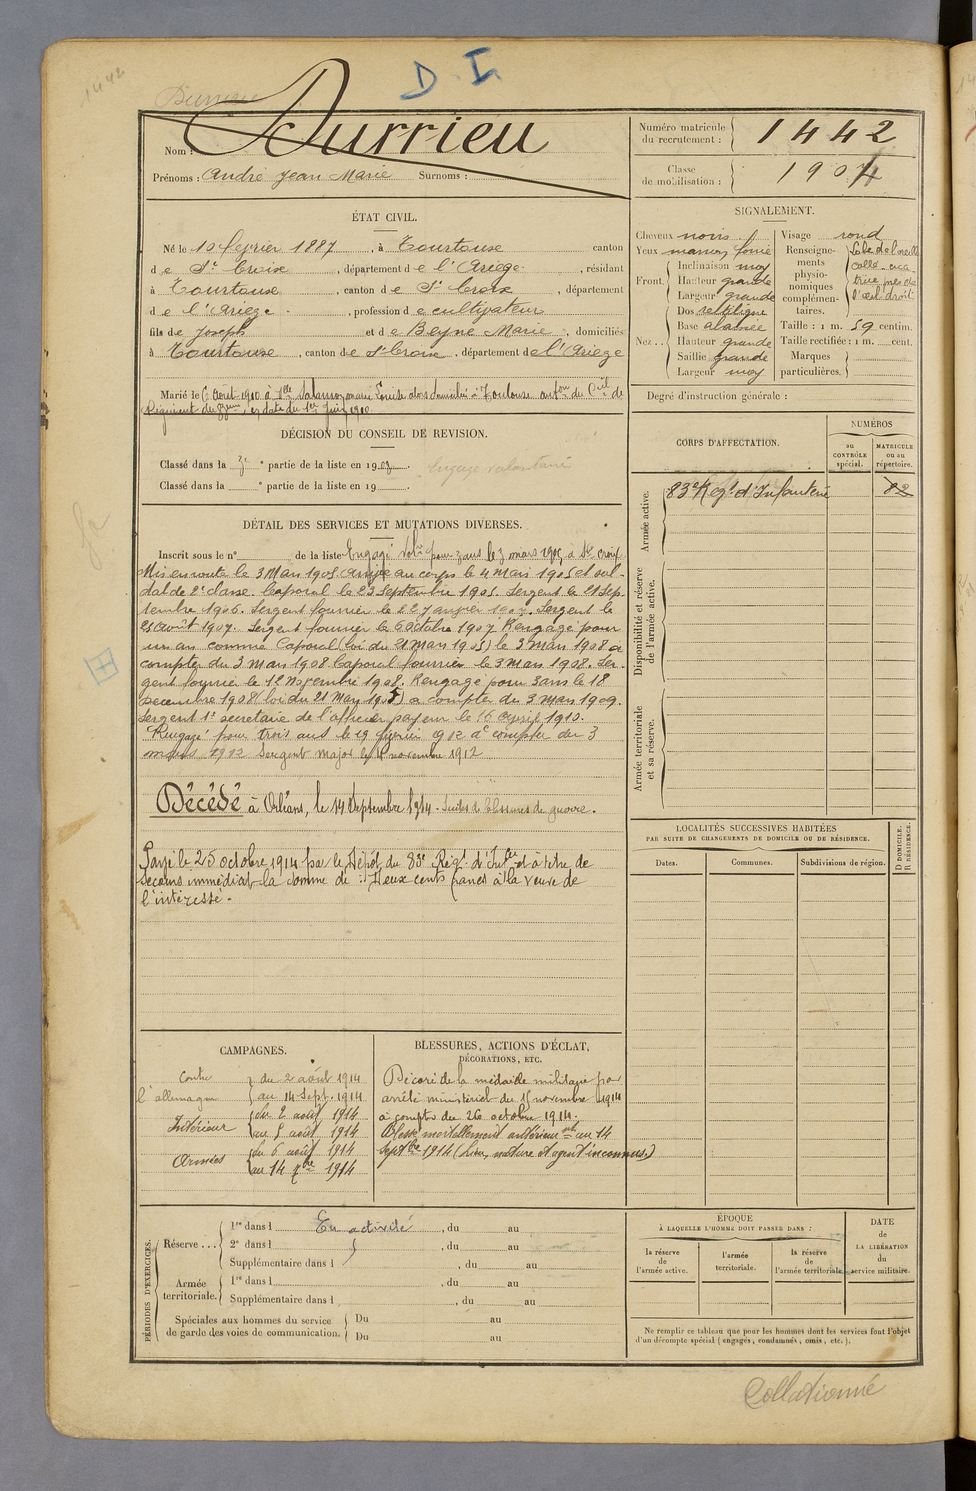 1442
D. I.
Nom : Durrieu
Prénoms : André Jean Marie Surnoms :
Numéro matricule du recrutement : 1442
Classe de mobilisation : 1904
ÉTAT CIVIL.
Né le 10 février 1887, à Tourtouse canton
de Ste Croix, département de l'Ariège, résidant
à Tourtouse, canton de Ste Croix, département
de l'Ariège, profession de cultivateur
fils de Joseph et de Beyne Marie, domiciliés
à Tourtouse, canton de Ste Croix, département de l'Ariège
Marié le 6 Aout 1910 à Melle Marie Louise alors domiciliée à Toulouse
Régiment du en date du 1er Juin 1910
DÉCISION DU CONSEIL DE REVISION.
Classé dans la 3e partie de la liste en 1903. Engagé volontaire
Classé dans la ° partie de la liste en 19
DÉTAIL DES SERVICES ET MUTATIONS DIVERSES.
Inscrit sous le n° de la liste Engagé Volre pour 3 ans le 3 mars 1905 à Ste Croix
Mis en route le 3 Mars 1905 arrivé au corps le 4 Mars 1905 et sol-
dat de 2e classe. Caporal le 23 Septembre 1905. Sergent le 21 Sep-
tembre 1906. Sergent fourrier le 22 Janvier 1907. Sergent le
25 Août 1907. Sergent fourrier le 6 Octobre 1907 Rengagé pour
un an comme Caporal (loi du 21 Mars 1905) le 3 Mars 1908 à
compter du 3 Mars 1908 Caporal fourrier le 3 Mars 1908. Ser-
gent fourrier le 12 Novembre 1908. Rengagé pour 3 ans le 18
Décembre 1908 (loi du 21 Mars 1905) à compter du 3 Mars 1909.
Sergent 1er secrétaire de l'officier payeur le 16 Avril 1910.
Rengagé pour trois ans le 19 février 1912 à compter du 3
mars 1912 Sergent Major le 4 novembre 1912
Décédé à Orléans, le 14 Septembre 1914 - Suites de blessures de guerre.
Payé le 25 octobre 1914 par le Dépôt du 83e Régt d'Infie et à titre de
secours immédiat la somme de : Deux cents francs à la veuve de
l'intéressé.
CAMPAGNES.
Contre l'allemagne du 2 août 1914
au 14 Sept. 1914
Intérieur du 2 août 1914
au 5 août 1914
Armées du 6 août 1914
au 14 7bre 1914
BLESSURES, ACTIONS D'ÉCLAT,
DÉCORATIONS, ETC.
Décoré de la médaille militaire par
arrêté ministériel du 15 novembre 1914
à compter du 26 octobre 1914.
Blessé mortellement antérieurnt au 14
Septbre 1914 (Lieu, nature et agent inconnus.)
PÉRIODES D'EXERCICES.
Réserve...
1re dans l En activité, du au
2e dans l , du au
Supplémentaire dans l , du au
Armée territoriale.
1re dans l , du au
Supplémentaire dans l , du au
Spéciales aux hommes du service
de garde des voies de communication.
Du au
Du au
SIGNALEMENT.
Cheveux noirs
Yeux marron foncé
Front. Inclinaison moy
Hauteur grande
Largeur grande
Nez.. Dos rectiligne
Base abaissée
Hauteur grande
Saillie grande
Largeur moy
Visage rond
Renseignements physionomiques complémentaires.
Lobe de l'oreille
collé. cica
trice près de
l'œil droit
Taille : 1 m. 59 centim.
Taille rectifiée : 1 m. cent.
Marques particulières.
Degré d'instruction générale :
CORPS D'AFFECTATION.
NUMÉROS
au CONTRÔLE spécial.
MATRICULE ou au répertoire.
Armée active.
83e Régt d'Infanterie
Disponibilité et réserve de l'armée active.
Armée territoriale et sa réserve.
LOCALITÉS SUCCESSIVES HABITÉES
PAR SUITE DE CHANGEMENTS DE DOMICILE OU DE RÉSIDENCE.
Dates.
Communes.
Subdivisions de région.
D DOMICILE.
R RÉSIDENCE.
ÉPOQUE
À LAQUELLE L'HOMME DOIT PASSER DANS :
la réserve de l'armée active.
l'armée territoriale.
la réserve de l'armée territoriale.
DATE de LA LIBÉRATION du service militaire.
Ne remplir ce tableau que pour les hommes dont les services font l'objet
d'un décompte spécial (engagés, condamnés, omis, etc.).
Collationné